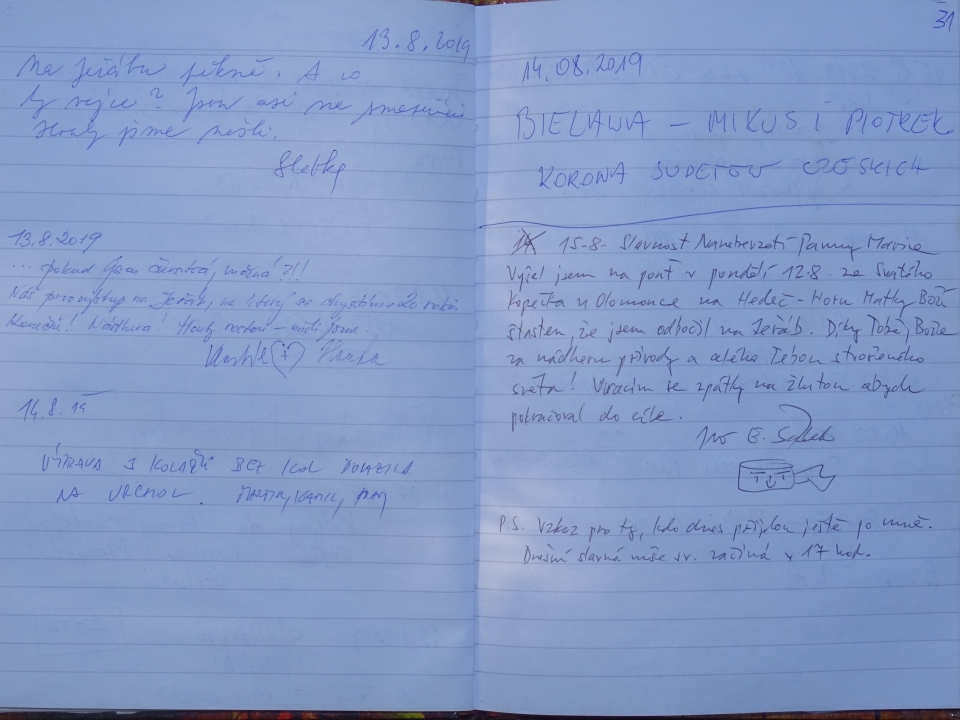 13.8.2019
Na Jeřábu pěkně. A co
ty vejce? Jsou asi na
Houby jsme nešli.
13.8.2019
... pokud jsem možná ?!!
Náš výstup na Jeřáb, na který se
Konečně! Nádhera! Houby rostou - našli jsme.
Hanka
14.8.19
VÝPRAVA 3 KOLAŘŮ BEZ KOL DORAZILA
NA VRCHOL.
31
14.08.2019
BIELAWA - MIKUŚ I PIOTREK
KORONA SUDETÓW CZESKICH
15.8. Slavnost Nanebevzetí Panny Marie
Vyšel jsem na pouť v pondělí 12.8. ze Svatého
Kopečka u Olomouce na Hedeč - Horu Matky Boží
šťasten, že jsem odbočil na Jeřáb. Díky Tobě, Bože
za nádheru přírody a celého Tebou stvořeného
světa! Vracím se zpátky na žlutou abych
pokračoval do cíle.
P.S. Vzkaz pro ty, kdo dnes přijdou ještě po mně.
Dnešní slavná mše sv. začíná v 17 hod.